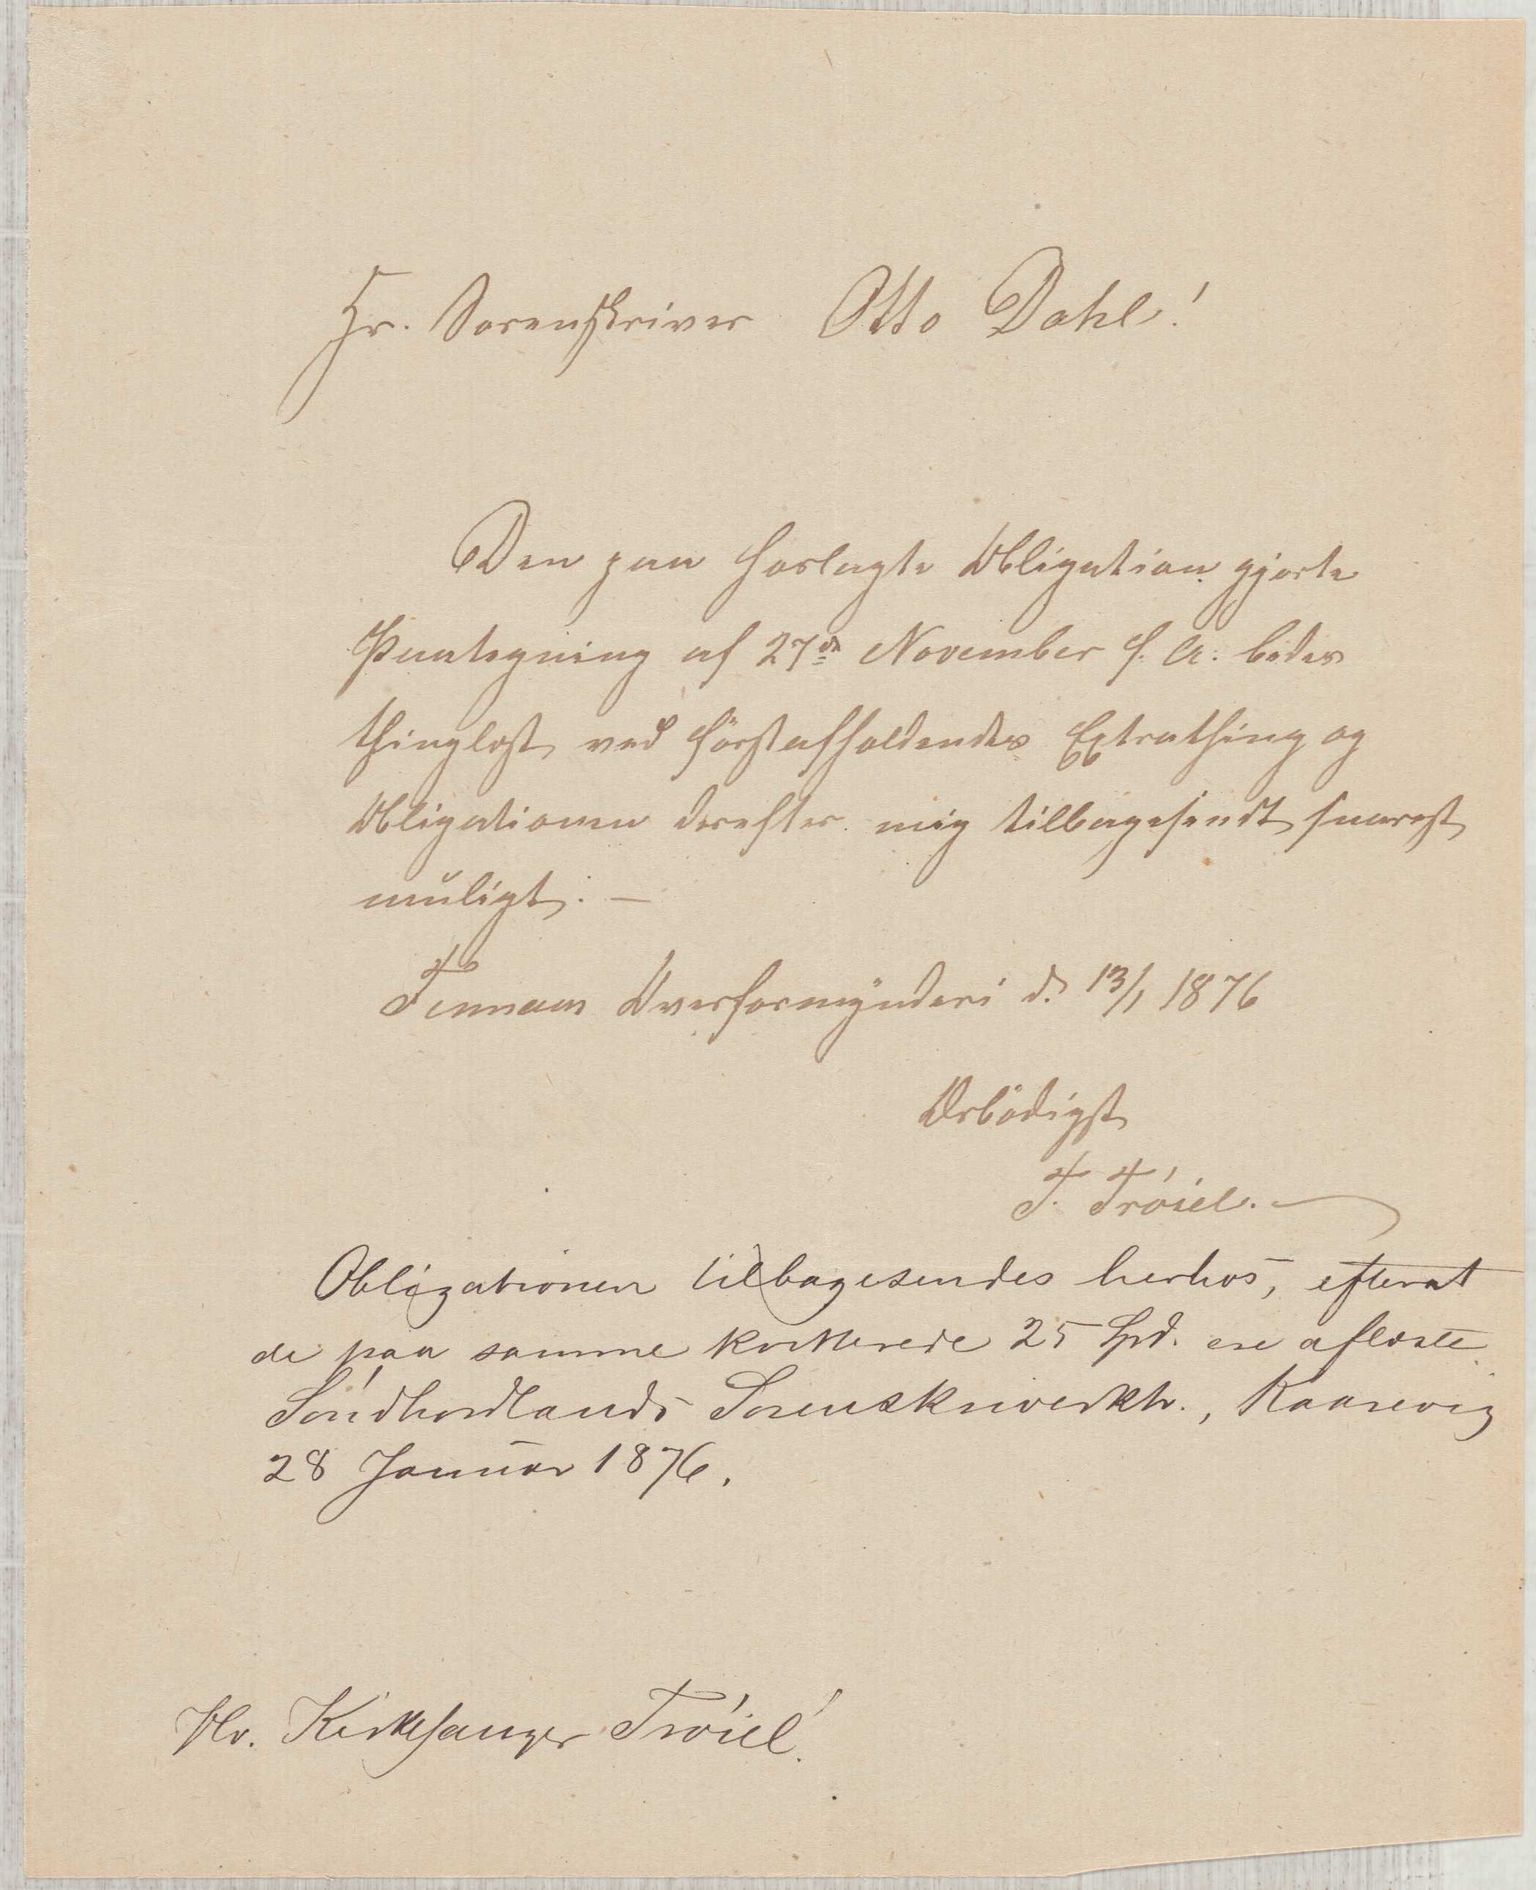 Hr. Sorenskriver Otto Dahl!
Den paa hoslagte Obligation gjorte
Paategning af 27de November f. A. bedes
thinglæst ved förstafholdendes Extrathing og
Obligationen derefter mig tilbagesendt snarest
muligt. —
Finnaas Overformynderi d. 13/1 1876
Ærbödigst
T. Tröiel.
Obligationen tilbagesendes herhos, efterat
de paa samme kvitterede 25 Spd. ere aflæste
Söndhordlands Sorenskriverktr., Kaarevig
28 Januar 1876.
Hr. Kirkesanger Tröiel!